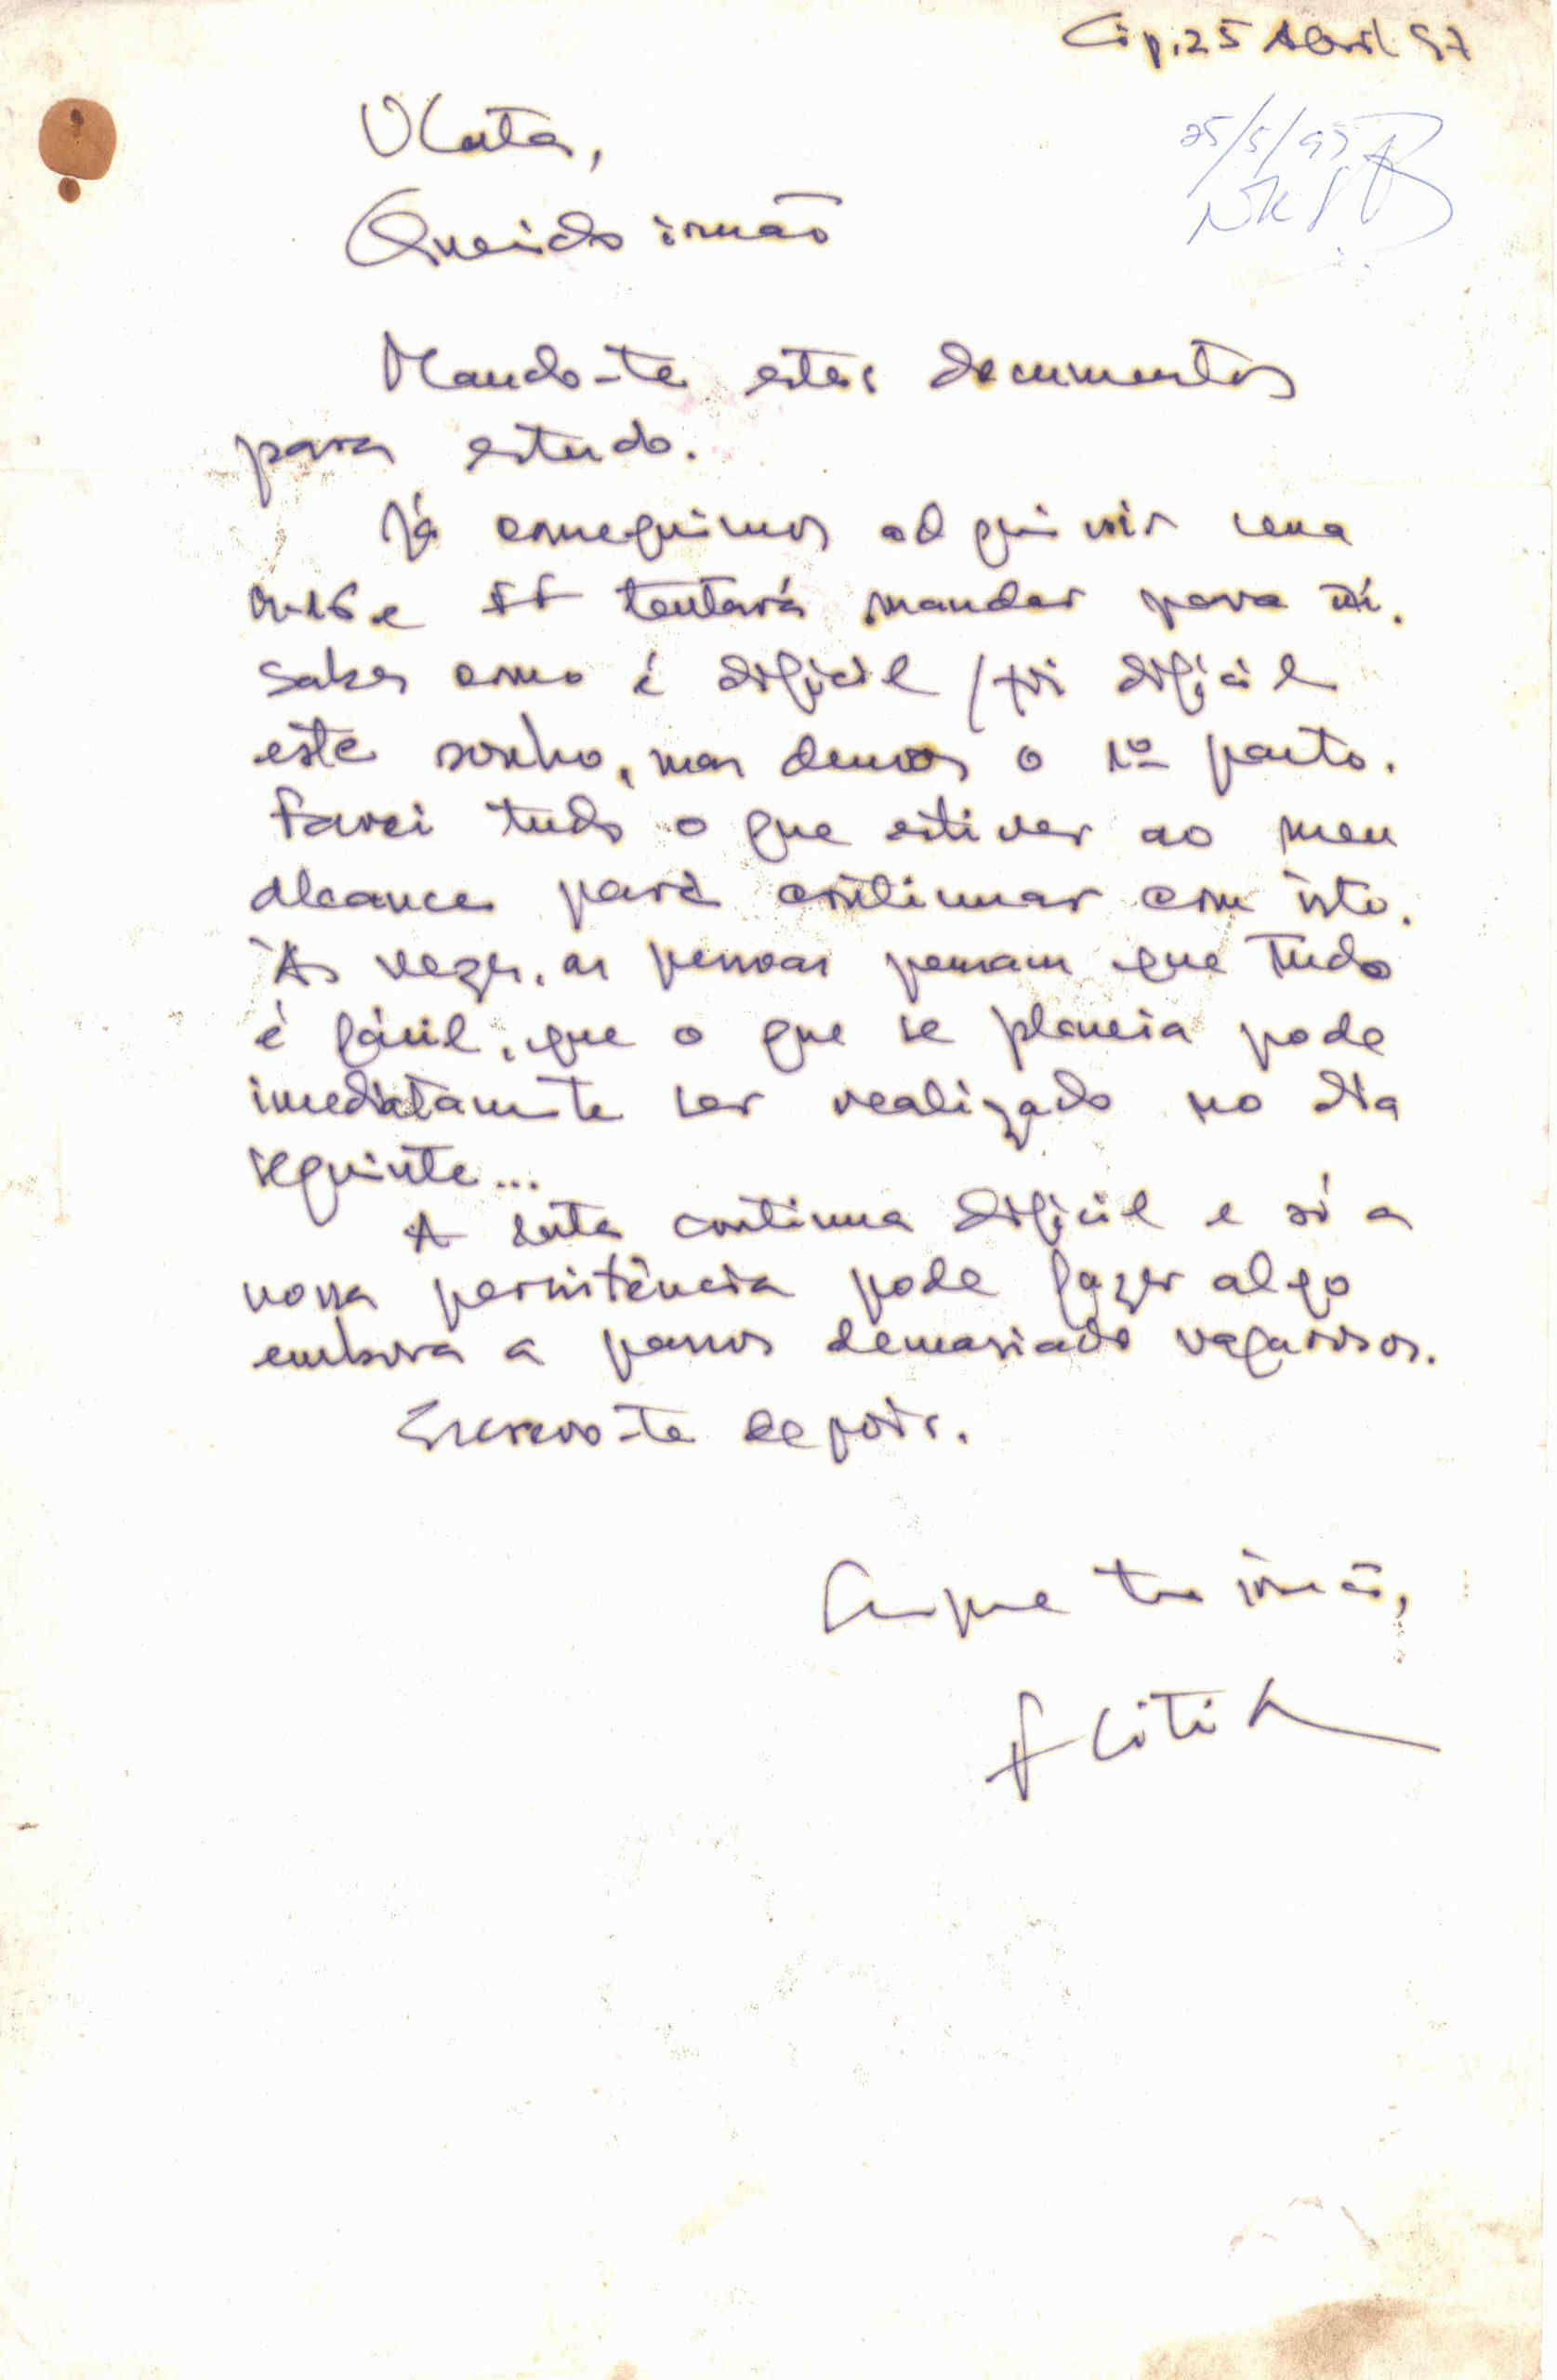 25 Abril 97
25/5/97
Mata,
Querido irmão
Mando-te estes documentos
para estudo.
Já conseguimos adquirir uma
e tentará mandar para aí.
Sabes como é difícil / foi difícil
este sonho, mas demos o 1º parto.
Farei tudo o que estiver ao meu
alcance para continuar com isto.
Às vezes, as pessoas pensam que tudo
é fácil, que o que se planeia pode
imediatamente ser realizado no dia
seguinte...
A luta continua difícil e só a
nossa persistência pode fazer algo
embora a passos demasiado vagarosos.
Escrevo-te depois.
Sempre teu irmão,